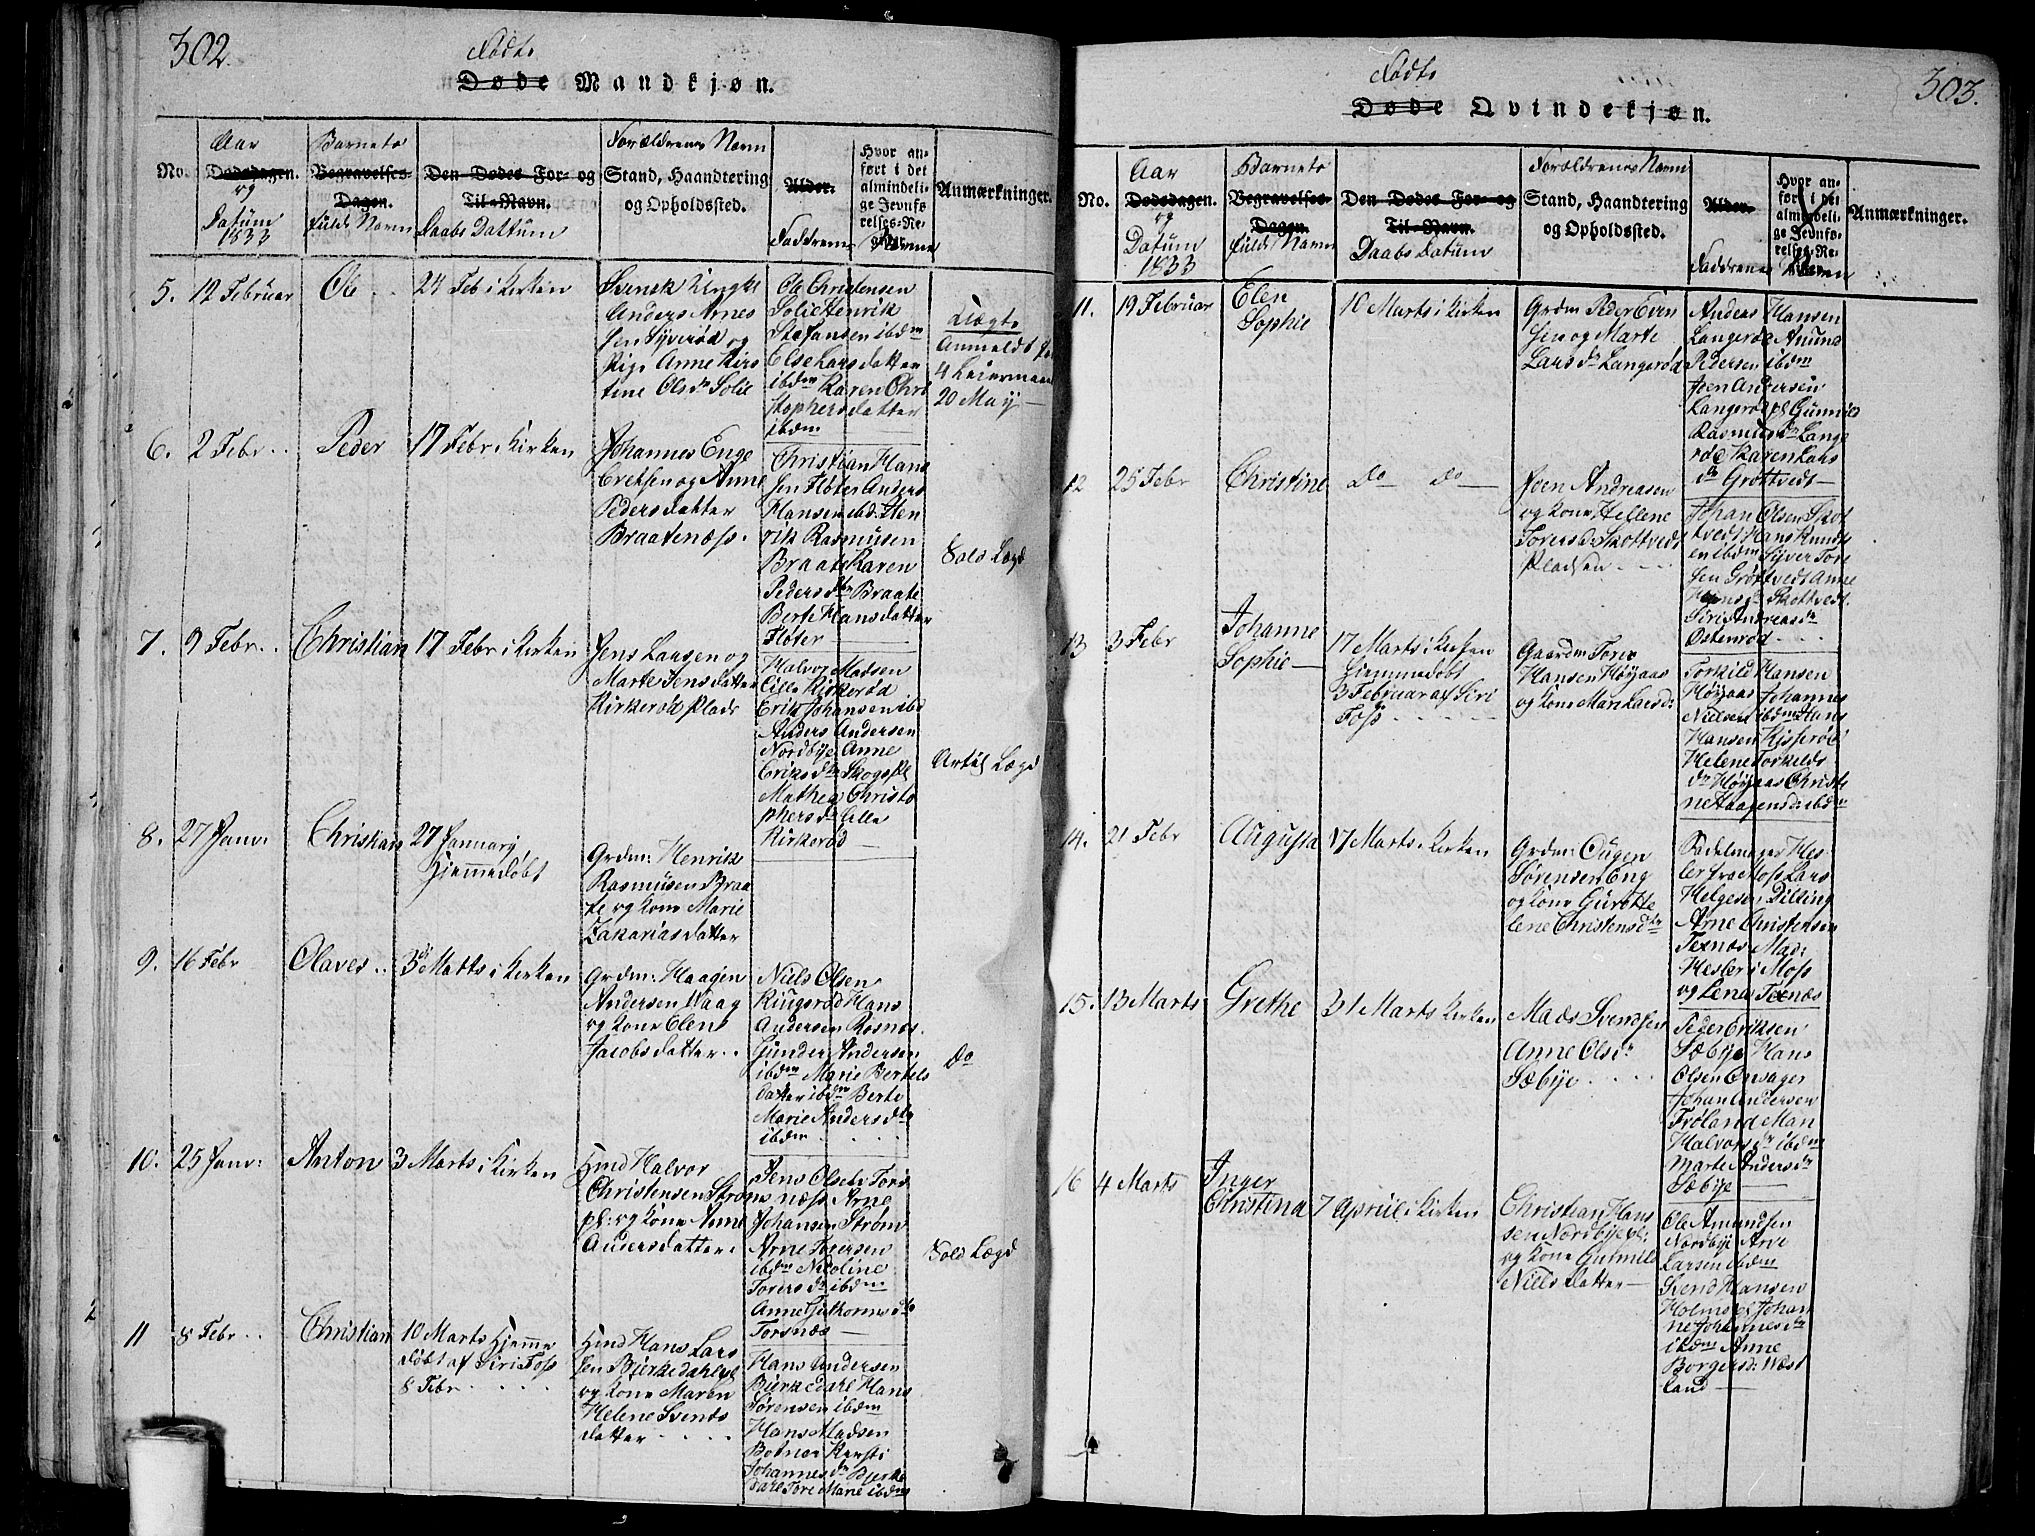 302.
Födte
Døde Mandkjøn.
No.
Aar
Dødsdagen.
og
Datum
1833
Barnets
Begravelses-
Dagen.
fulde Navn
Den Dødes For- og
Til-Navn.
Daabs Dattum
Forældrenes Navn
Stand, Haandtering
og Opholdssted.
Alder.
Faddrenes Navne
Hvor an-
ført i det
almindeli-
ge Jevnfø-
relses-Re-
Anmærkninger.
5. 12 Februar
Ole
24 Feb i Kirken
Anders Arnes
sen Syverød og
Pige Anne Kirs
tine Olsdr Solie
Ole Christensen
Solie Henrik
Stefansen ibdm
Else Larsdatter
ibdm Karen Chri
stophersdatter
ibdm
Anmeldt
4 Leiermaal
20 May
6. 2 Febr
Peder
17 Febr i Kirken
Johannes Enge
bretsen og Anne
Pedersdatter
Braatenæss.
Christian Hans
sen Fløter Anders
Hansen ibd: Hen
rik Rasmusen
Braate Karen
Pedersdtr Braate
Berte Hansdatter
Fløter
Sold Lægd
7. 9 Febr
Christian
17 Febr i Kirken
Jens Larsen og
Marte Jensdatter
Kirkerød Plads
Halvor Madsen
Lille Kirkerød
Erik Johansen ibd
Anders Andersen
Nordbye Anne
Eriksdtr Skogspl
Mathea Christo
phersdr Lille
Kirkerød
Artil Lægd
8. 27 Janv.
Christian
27 Januarij
Hjemmedøbt
Grdm: Henrik
Rasmusen Braa
te og kone Marie
Zakariasdatter
9. 16 Febr
Olaves
3 Marts i Kirken
Grdm: Haagen
Andersen Vaag
og kone Elen
Jacobsdatter
Niels Olsen
Ringsrød Hans
Andersen Rosnæs.
Gunder Andersen
ibdm Marie Bertels
datter ibdm Berte
Marie Andersdtr
ibdm
Do
10. 25 Janv:
Anton
3 Marts i Kirken
Hmd Halvor
Christensen Strøms
pl: og kone Anne
Andersdatter.
Jens Olsen Tors
næss Arne
Johansen Strøm
Arne Torersen
ibdm Nicoline
Torersdr ibdm
Anne Guttormsdtr
Torsnæs
Sold Lægd
11 8 Febr
Christian
10 Marts Hjemme
døbt af Siri Foss
8 Febr
Hmd Hans Lars
sen Bjerkedahlspl
og kone Maren
Helene Svends
datter
Hans Andersen
Bierkedahl Hans
Sørensen ibdm
Hans Madsen
Botner Kersti
Johannesdr Bjerke
dahl Tore Marie ibdm
303.
Födte
Døde Qvindekjøn.
No.
Aar
Dødsdagen.
og
Datum
1833
Barnets
Begravelses-
Dagen.
fulde Navn
Den Dødes For- og
Til-Navn.
Daabs Datum
Forældrenes Navn
Stand, Haandtering
og Opholdssted.
Alder.
Faddrenes Navne
Hvor an-
ført i det
almindeli-
ge Jevnfø-
relses-Re-
Anmærkninger.
11. 19 Februar
Elen
Sophie
10 Marts i Kirken
Grdm Peder Even
sen og Marte
Larsdr Langerød
Anders Hansen
Langerød Amund
Pedersen ibdm
Iven Andersen
Langerød pl Gunnild
Rasmusdr Lange
rød Karen Lars
dr Grøttvedt
12 25 Febr
Christine
Do Do
Iven Andreasen
og kone Hellene
Torersdr Skottvedt
Pladsen
Johan Olsen Skot
tvedt Hans Knuds
en ibdm Syver Tore
sen Grøttvedt Anne
Hansdr Skottvedt.
Siri Andreasdr
Ostenrød
13 3 Febr
Johanne
Sophie
17 Marts i Kirken
Hjemmedøbt
3 Februar af Siri
Foss
Gaardm Tore
Hansen Høyaas
og kone Mari Larsd:
Torkild Hansen
Høyaas Johannes
Nielsen ibdm Hans
Hansen Kjsserød
Helene Torkilds
dr Høyaas Christi
ne Haagensd: ibdm
14. 21 Febr
Augusta
17 Marts i Kirken
Grdm: Ougen
Sørensen Eng
og kone Guro He
lene Christensdtr
Sadelmager Hes
ler fra Moss Lars
Helgesen Dilling
Arne Christensen
Texnæs Mad:
Hesler i Moss
og Lena Texnæs
15. 13 Marts
Grethe
31 Marts i Kirken
Mads Svendsen
Anne Olsdr
Sæbye
Peder Eriksen
Sæbye Hans
Olsen Onsager
Johan Andersen
Frøland Mari
Halvorsdr ibdm
Marte Andersdr
Sæbye
16 4 Marts
Inger
Christina
7 Apriil i Kirken
Christian Hans
sen Nordbye pl:
og kone Gunnild
Nielsdatter
Ole Amundsen
Nordbye Arve
Larsen ibdm
Svend Hansen
Holms pl Johan
ne Johannesdr
ibdm Anne
Borgersd: Væst
land